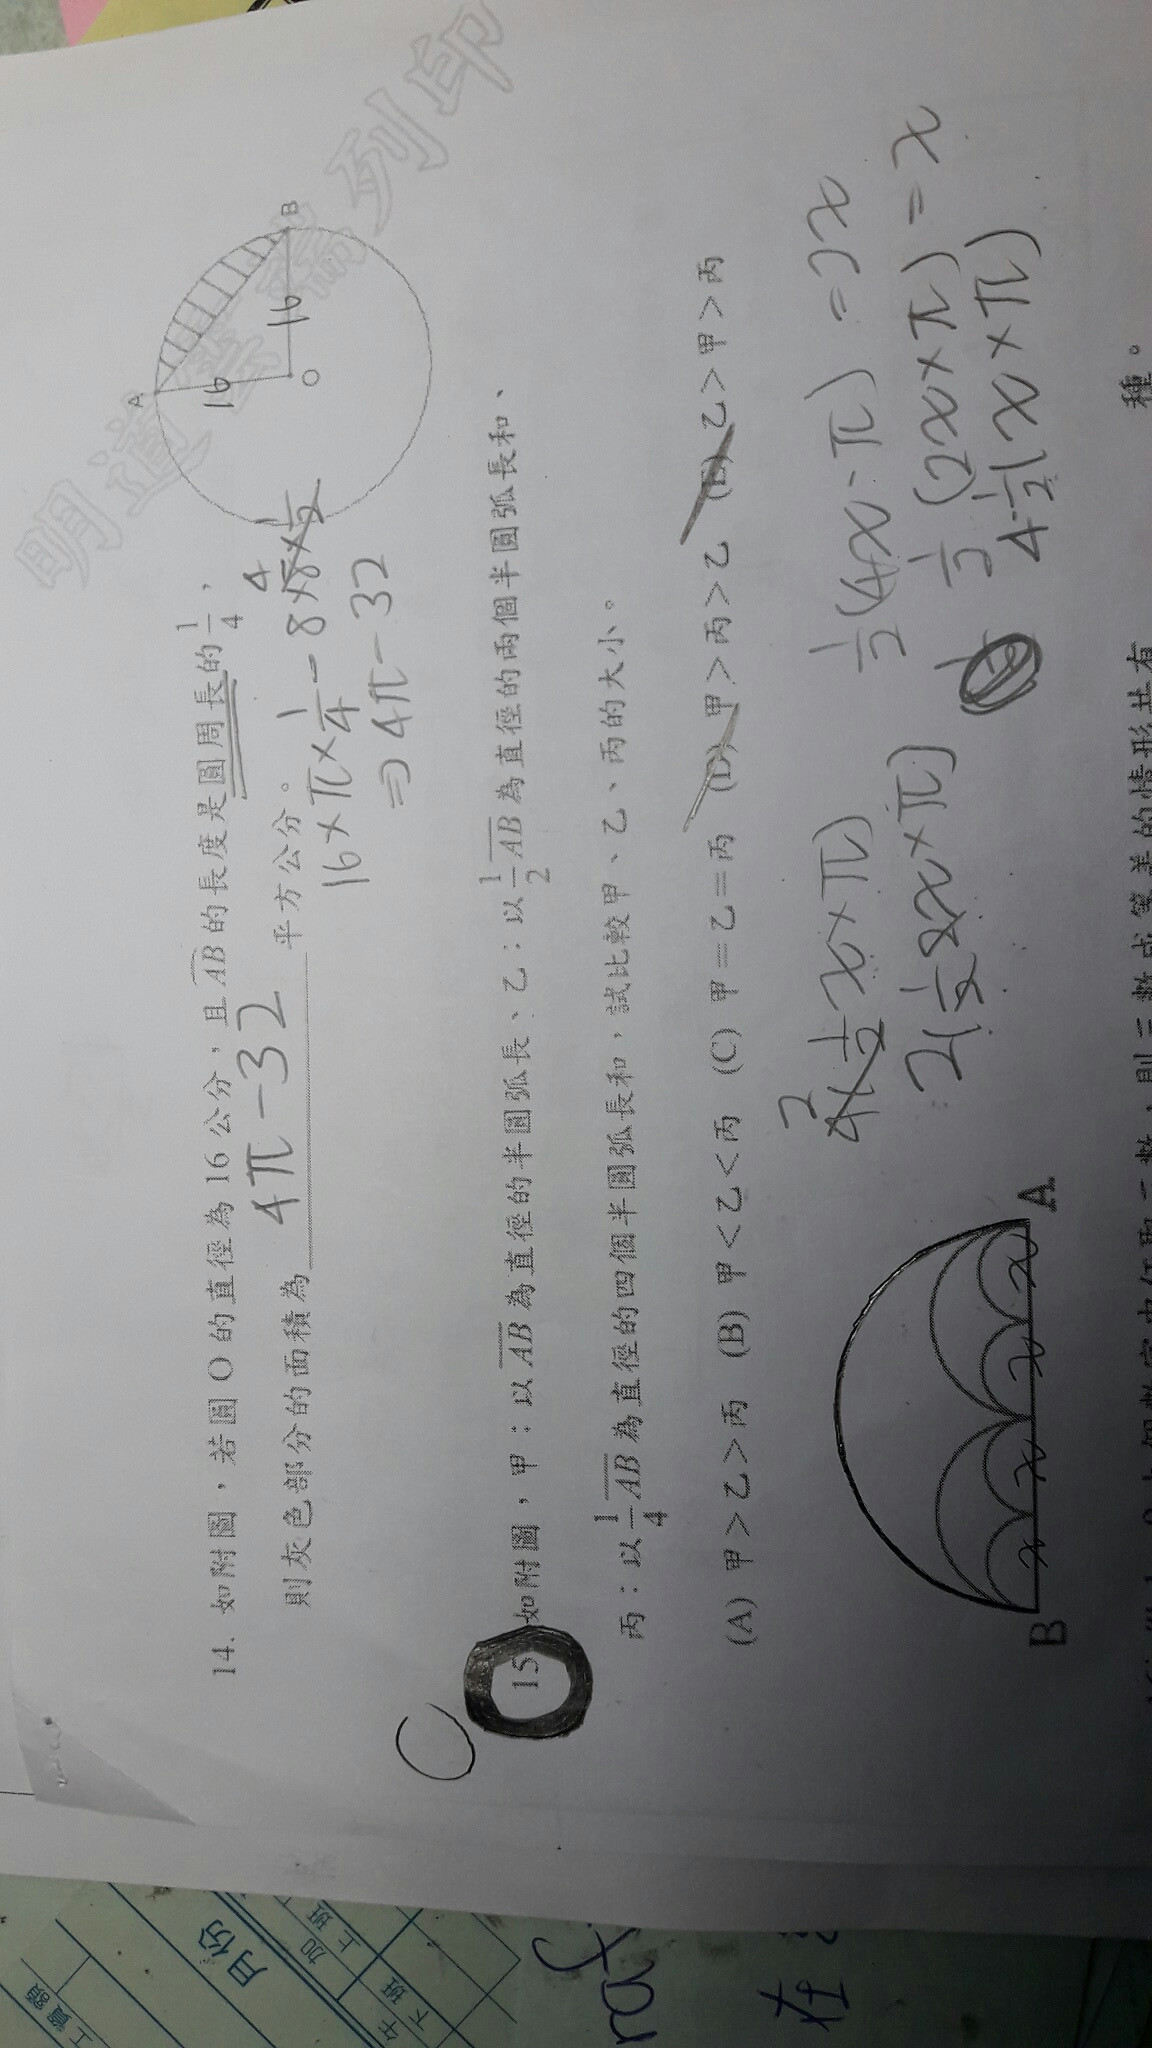 明道
列印
14. 如附圖，若圓O的直徑為16公分，且AB的長度是圓周長的1/4，
則灰色部分的面積為4π-32平方公分。
16×π×1/4-8×8×1/2
4
⇒4π-32
A
16
16
O
B
C
15 如附圖，甲：以AB為直徑的半圓弧長、乙：以1/2AB為直徑的兩個半圓弧長和、
丙：以1/4AB為直徑的四個半圓弧長和，試比較甲、乙、丙的大小。
(A) 甲＞乙＞丙 (B) 甲＜乙＜丙 (C) 甲＝乙＝丙 (D) 甲＞丙＞乙 (E) 乙＞甲＞丙
2
4(1/2x×π)
2(1/2 2x×π)
(2x×π)=x
4·1/2(x×π)
B
x
x
x
x
A
種。
月份
加
上班
下班
午
在